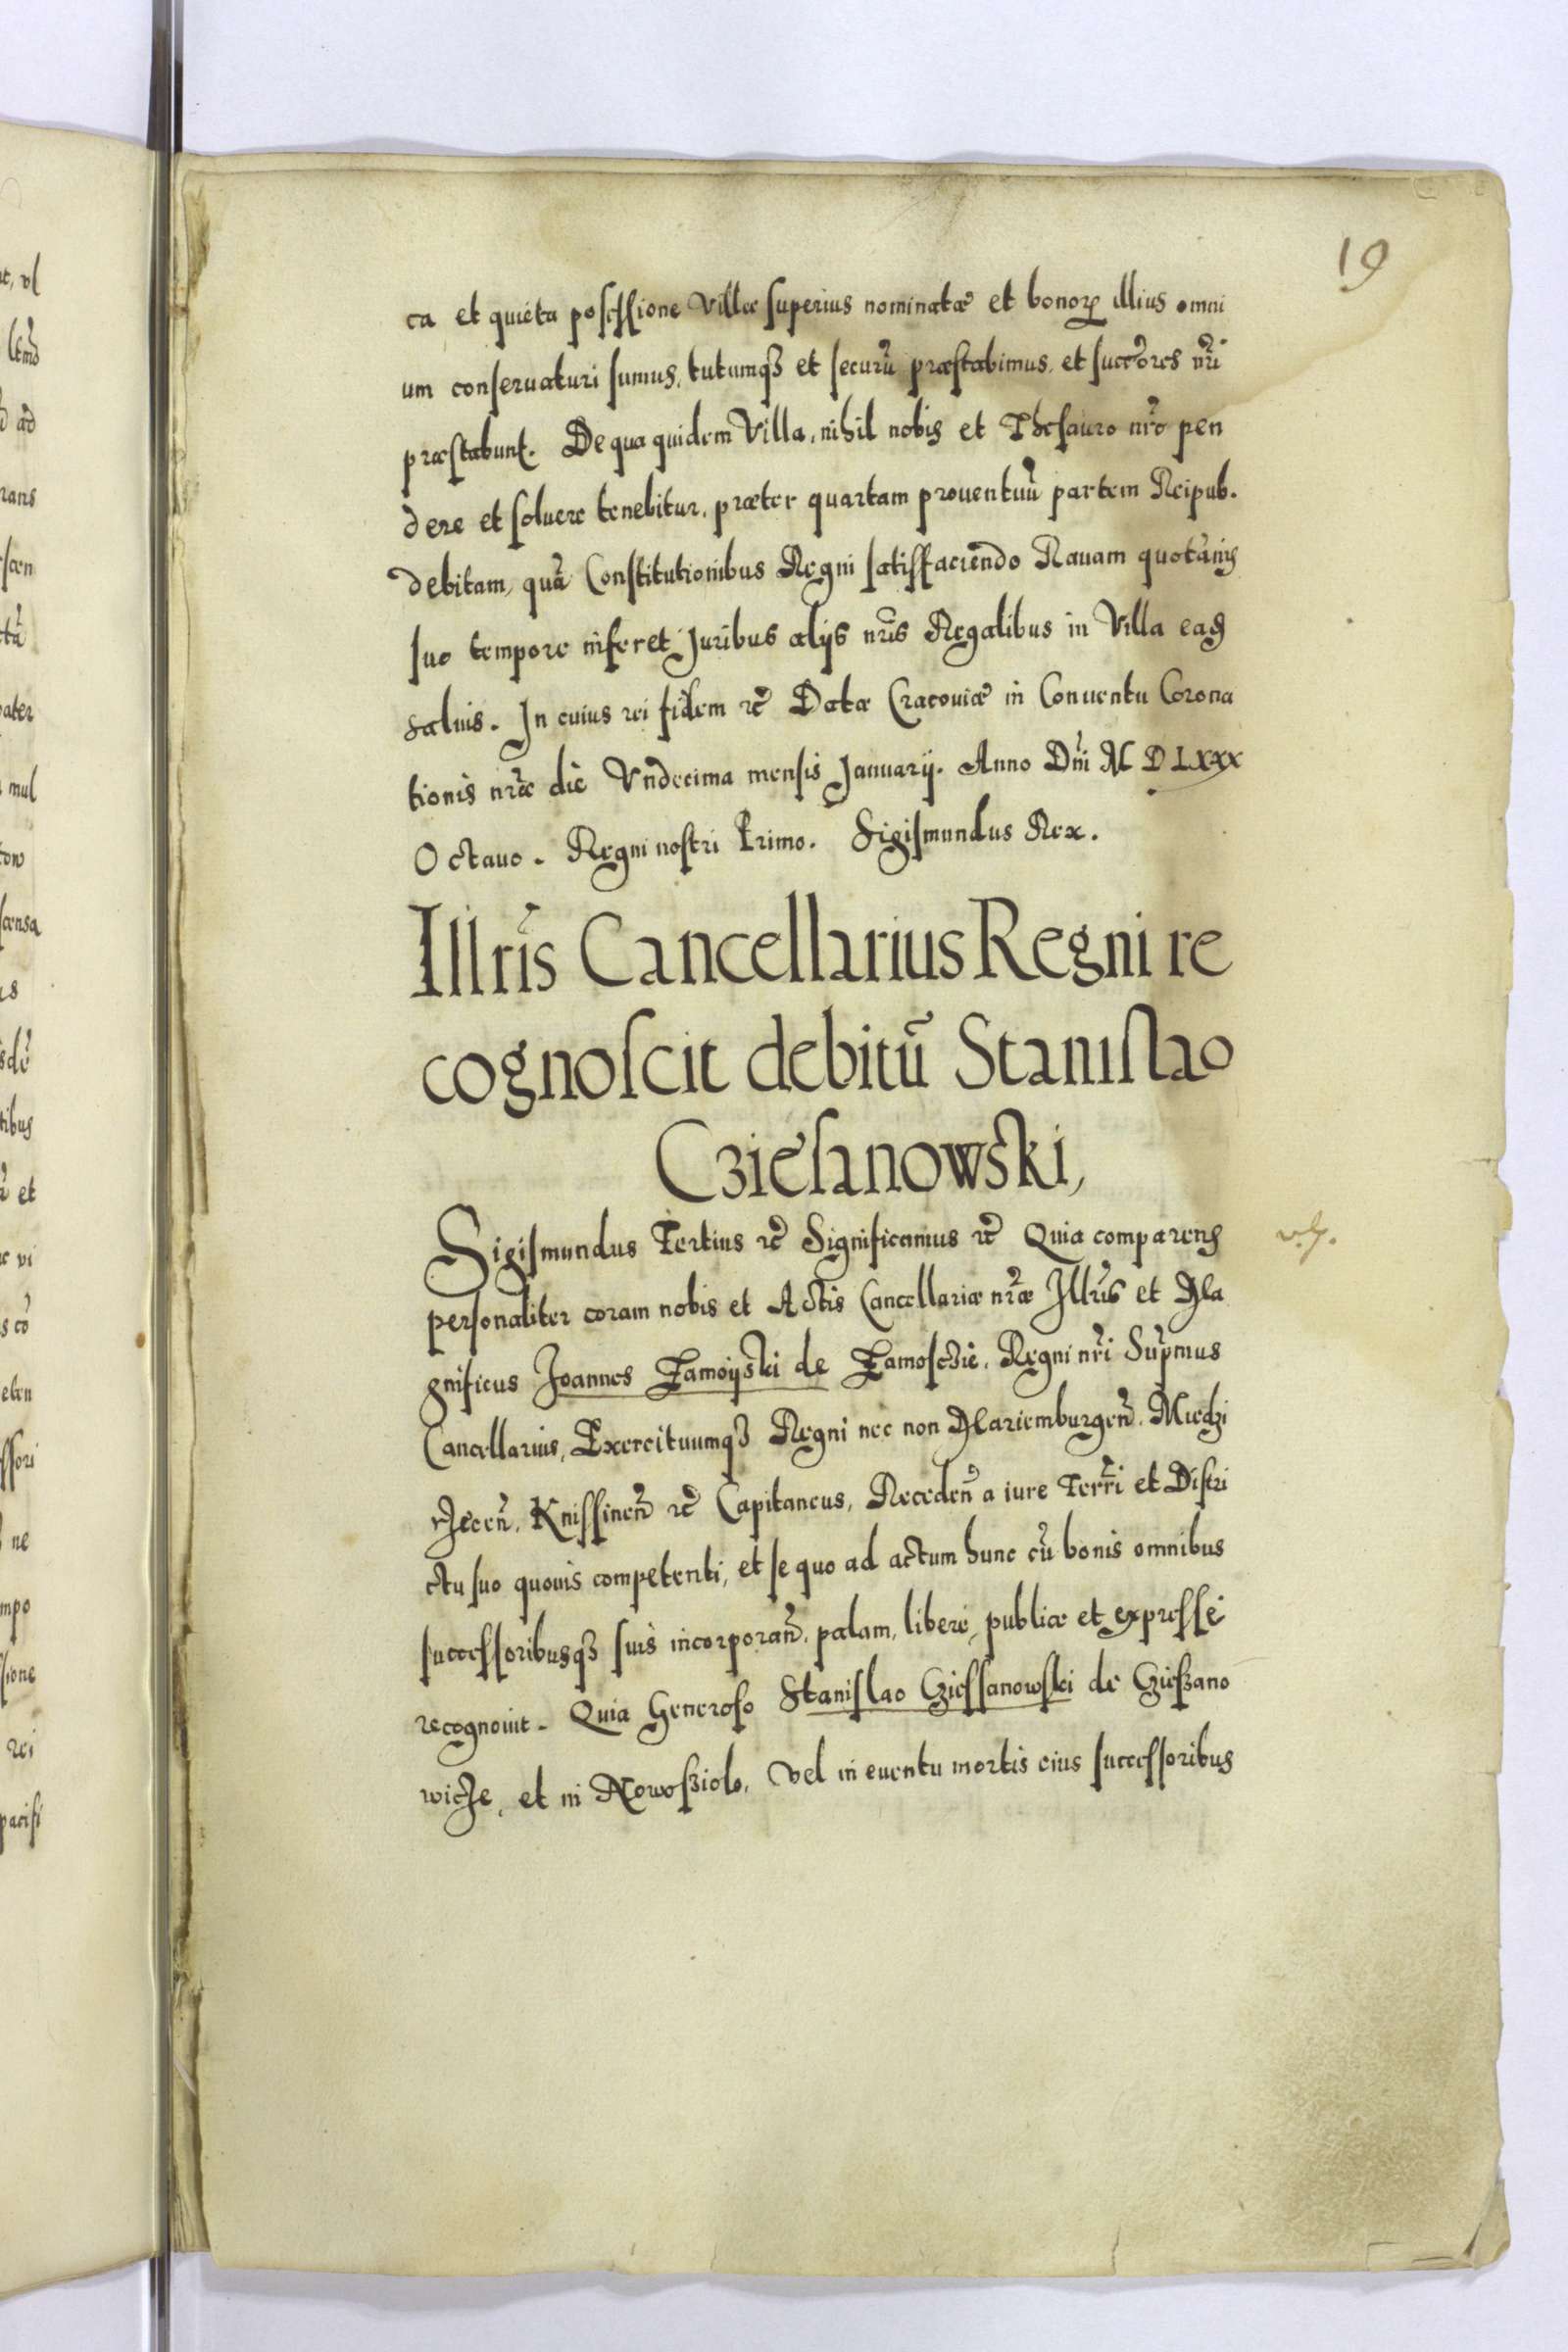 19
ca et quieta possessione Villæ superius nominatæ et bonorꝝ illius omni
um conseruaturi sumus, tutumqꝫ et securũ præstabimus, et succ̃ores nr̃i
præstabunt. De qua quidem Villa, nihil nobis et Thesauro nr̃o pen
dere et soluere tenebitur, præter quartam prouentuũ partem Reipub.
debitam, quã Constitutionibus Regni satisfaciendo Rauam quotãnis
suo tempore inferet Juribus alijs nr̃is Regalibus in Villa eadẽ
saluis. In cuius rei fidem ꝛc̃ Datæ Cracouiæ in Conuentu Corona
tionis nr̃æ die Vndecima mensis Januarij. Anno Dñi M D LXXX
Octauo. Regni nostri Primo. Sigismundus Rex.
Illr̃is Cancellarius Regni re
cognoscit debitũ Stanislao
Cziesanowski,
Sigismundus Tertius ꝛc̃ Significamus ꝛc̃ Quia comparens
personaliter coram nobis et Actis Cancellariæ nr̃æ Illr̃is et Ma
gnificus Joannes Zamoijski de Zamosczie, Regni nr̃i Supr̃mus
Cancellarius, Exercituumqꝫ Regni nec non Mariemburgeñ. Miedzi
rzeceñ, Knissineñ ꝛc̃ Capitaneus, Recedeñ a iure Terr̃i et Distri
ctu suo quouis competenti, et se quo ad actum hunc cũ bonis omnibus
successoribusqꝫ suis incorporañ, palam, libere, publice et expresse
recognouit. Quia Generoso Stanislao Cziessanowski de Czieszano
wicze, et in Nowosziolo, Vel in euentu mortis eius successoribus